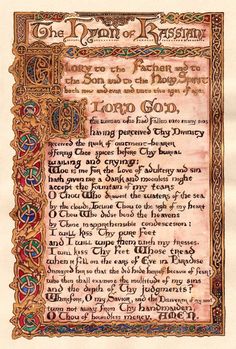 The Hymn of Kassiani
Glory to the Father and to
the Son and to the Holy Spirit
both now and ever and unto the ages of ages
O LORD GOD,
the woman who had fallen into many sins
having perceived Thy Divinity
received the rank of ointment-bearer
offering Thee spices before Thy burial
wailing and crying:
Woe is me for the love of adultery and sin
hath given me a dark and moonless night
accept the fountain of my tears
O Thou Who drawest the waters of the sea
by the clouds, incline Thou to the sigh of my heart
O Thou Who didst bend the heavens
by Thine inapprehensible condescension:
I will kiss Thy pure Feet
and I will wipe them with my tresses.
I will kiss Thy Feet Whose tread
when it fell on the ears of Eve in Paradise
dismayed her so that she did hide herself because of fear:
who then shall examine the multitude of my sins
and the depth of Thy judgments?
Wherefore, O my Saviour, and the Deliverer of my soul
turn not away from Thy handmaiden,
O Thou of boundless mercy. Amen.